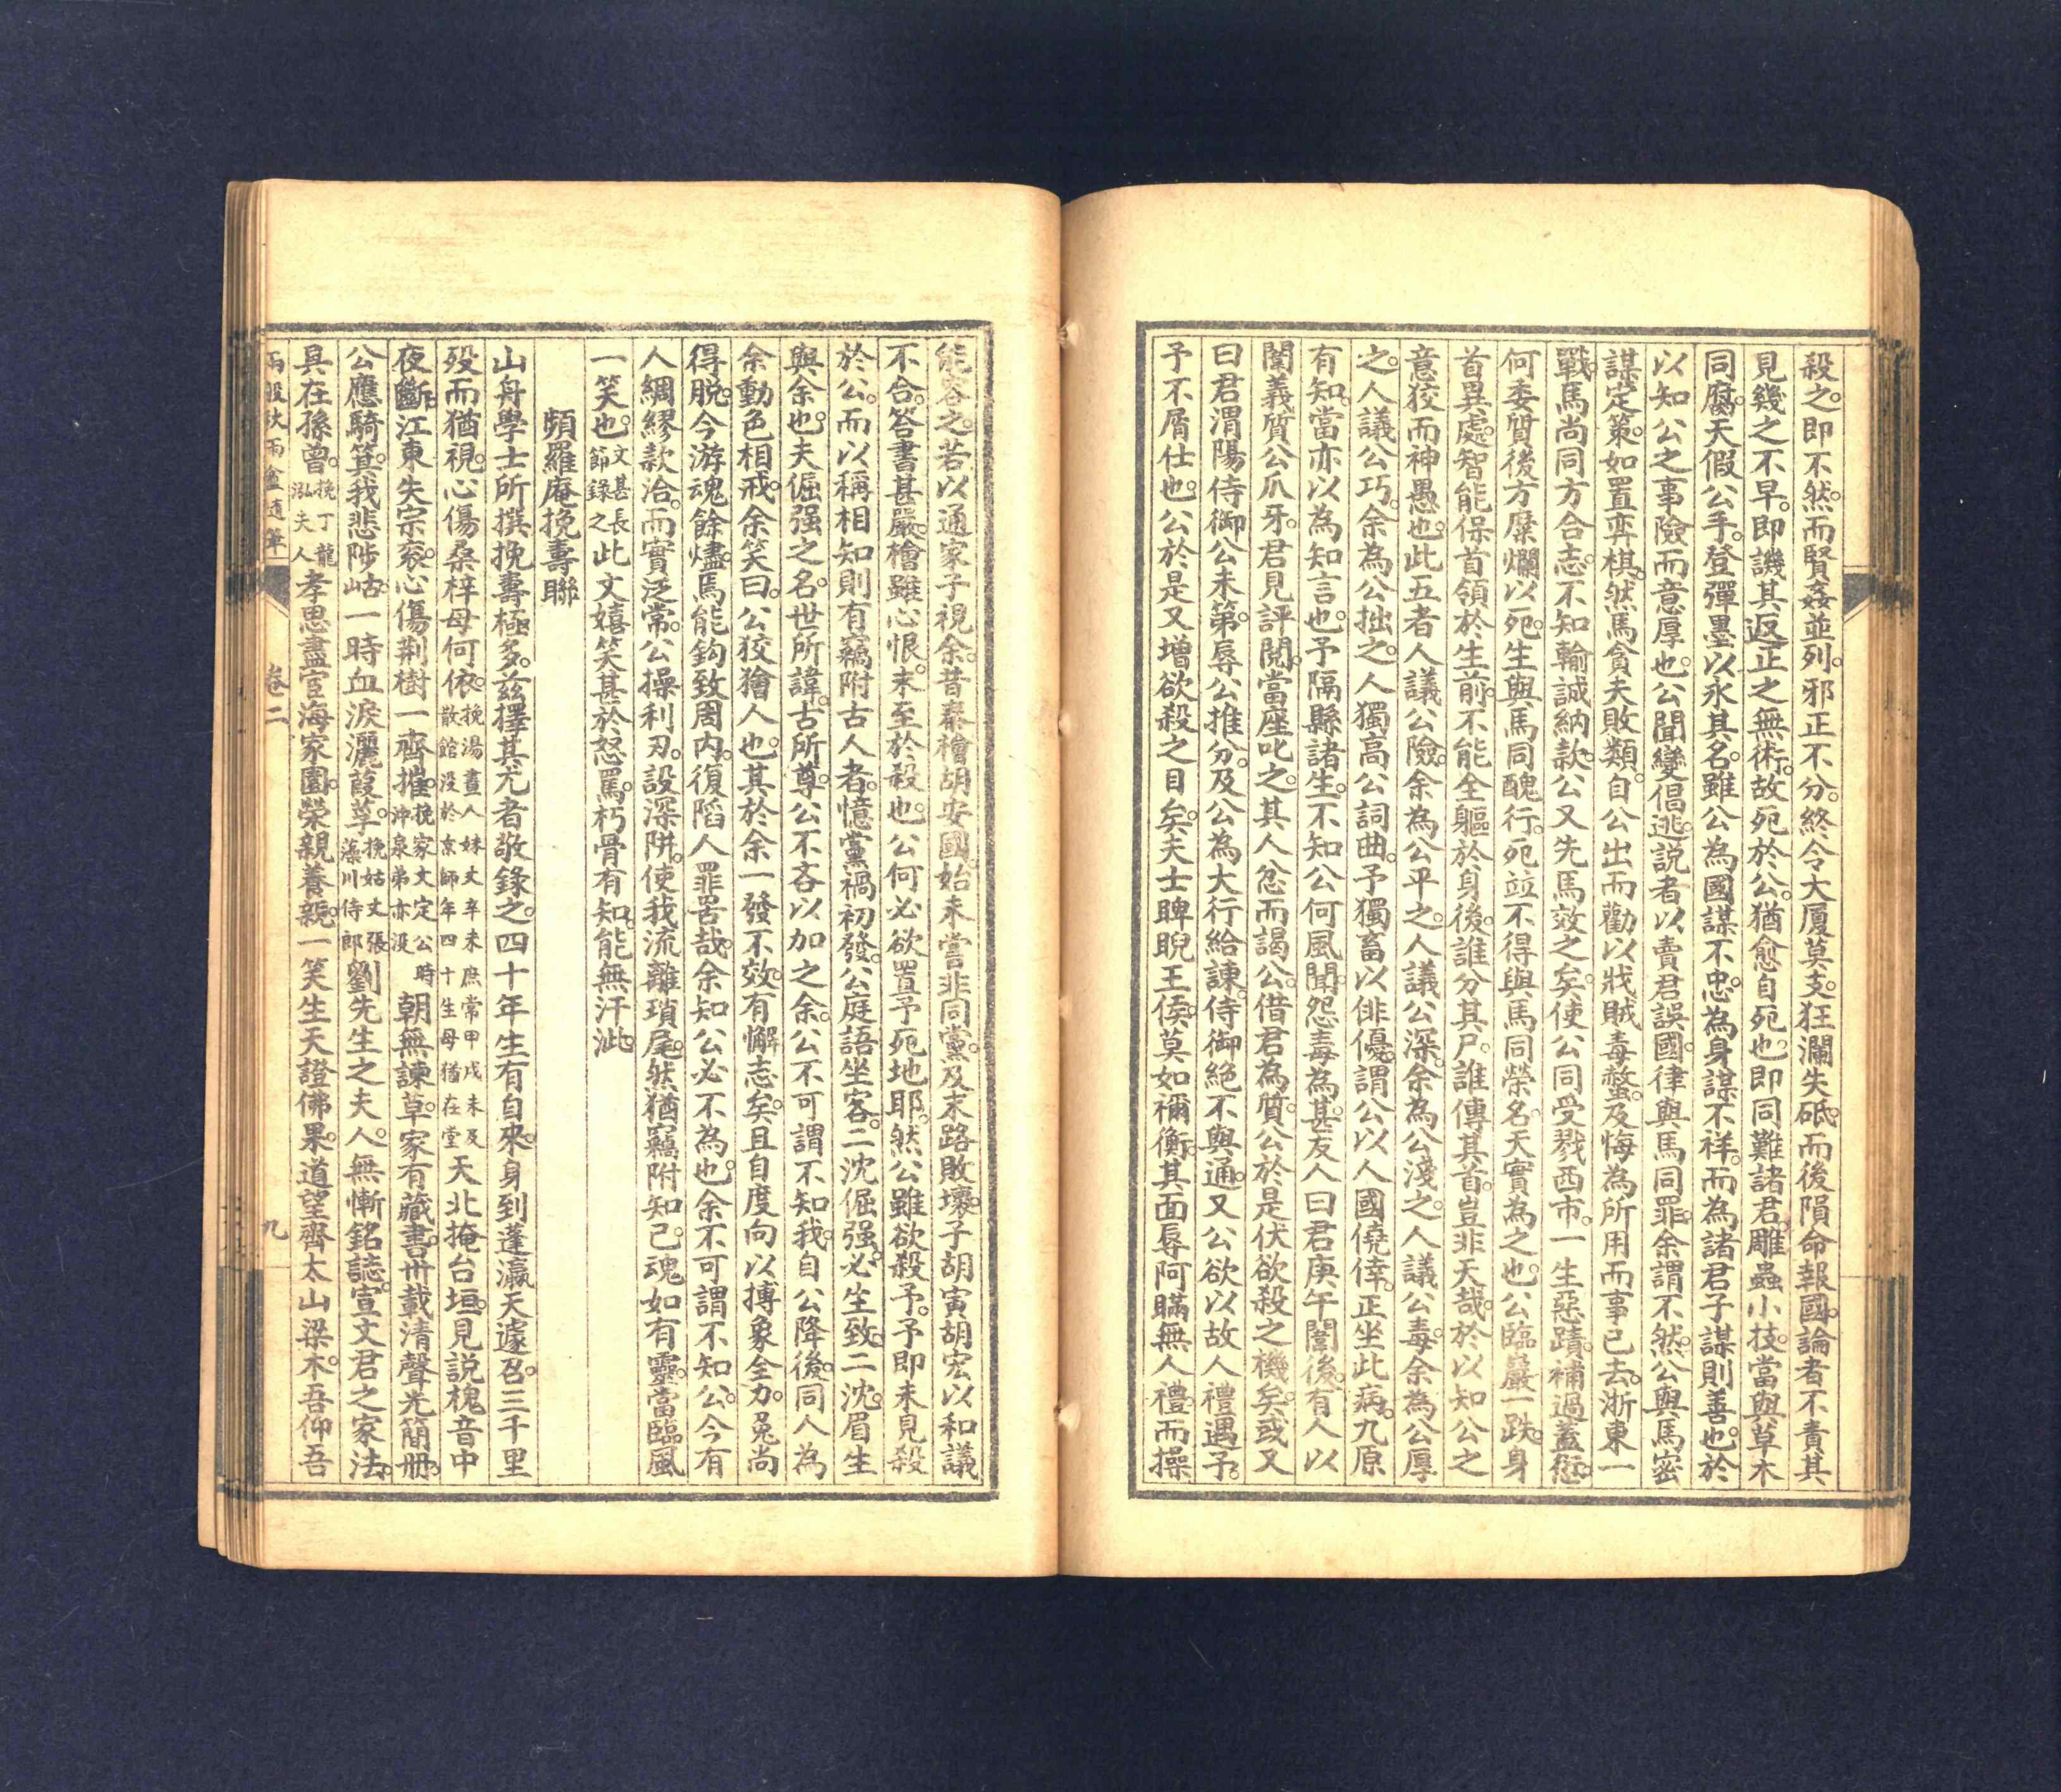 殺之。即不然。而賢姦並列。邪正不分。終令大厦莫支。狂瀾失砥。而後隕命報國。論者不責其
見幾之不早。即譏其返正之無術。故死於公。猶愈自死也。即同難諸君。雕蟲小技。當與草木
同腐。天假公手。登彈墨以永其名。雖公為國謀不忠。為身謀不祥。而為諸君子謀則善也。於
以知公之事險而意厚也。公聞變倡逃。説者以賣君誤國。律與馬同罪。余謂不然。公與馬密
謀定策。如置弈棋。然馬貪夫敗類。自公出而勸以戕賊毒螫。及悔為所用而事已去。浙東一
戰。馬尚同方合志。不知輸誠納款。公又先馬效之矣。使公同受戮西市。一生惡蹟。補過蓋愆。
何委質後方糜爛以死。生與馬同醜行。死竝不得與馬同榮名。天實為之也。公臨巖一跌。身
首異處。智能保首領於生前。不能全軀於身後。誰分其尸。誰傳其首。豈非天哉。於以知公之
意狡而神愚也。此五者人議公險。余為公平之。人議公深。余為公淺之。人議公毒。余為公厚
之。人議公巧。余為公拙之。人獨高公詞曲。予獨畜以俳優。謂公以人國僥倖。正坐此病。九原
有知。當亦以為知言也。予隔縣諸生。不知公何風聞。怨毒為甚。友人曰君庚午闈後。有人以
闈義質公爪牙。君見評閱。當座叱之。其人忿而謁公。借君為質。公於是伏欲殺之機矣。或又
曰君渭陽侍御公未第。辱公推分。及公為大行給諫。侍御絶不與通。又公欲以故人禮遇予。
予不屑仕也。公於是又增欲殺之目矣。夫士睥睨王侯。莫如禰衡。其面辱阿瞞無人禮。而操
能容之。若以通家子視余。昔秦檜胡安國。始未嘗非同黨。及末路敗壞。子胡寅胡宏以和議
不合。答書甚嚴。檜雖心恨。未至於殺也。公何必欲置予死地耶。然公雖欲殺予。予即未見殺
於公。而以稱相知則有竊附古人者。憶黨禍初發。公庭語坐客。二沈倔强。必生致二沈。眉生
與余也。夫倔强之名。世所諱。古所尊。公不吝以加之余。公不可謂不知我。自公降後。同人為
余動色相戒。余笑曰。公狡獪人也。其於余一發不效。有懈志矣。且自度向以摶象全力。兎尚
得脱。今游魂餘燼。焉能鈎致周内。復陷人罪罟哉。余知公必不為也。余不可謂不知公。今有
人綢繆款洽。而實泛常。公操利刃。設深阱。使我流離瑣尾。然猶竊附知己。魂如有靈。當臨風
一笑也。文甚長節錄之此文嬉笑甚於怒罵。朽骨有知。能無汗泚。
頻羅庵挽壽聯
山舟學士所撰挽壽極多。兹擇其尤者敬錄之。四十年生有自來。身到蓬瀛天遽召。三千里
殁而猶視。心傷桑梓母何依。挽湯晝人妹丈辛未庶常甲戌未及散館没於京師年四十生母猶在堂天北掩台垣。見説槐音中
夜斷。江東失宗衮。心傷荆樹一齊摧。挽家文定公時沖泉弟亦没朝無諫草。家有藏書。卅載清聲光簡册。
公應騎箕。我悲陟岵。一時血淚灑葭莩。挽姑丈張藻川侍郎劉先生之夫人。無慚銘誌。宣文君之家法。
具在孫曾。挽丁龍泓夫人孝思盡宦海家園。榮親養親。一笑生天證佛果。道望齊太山梁木。吾仰吾
兩般秋雨盦隨筆 卷二 九